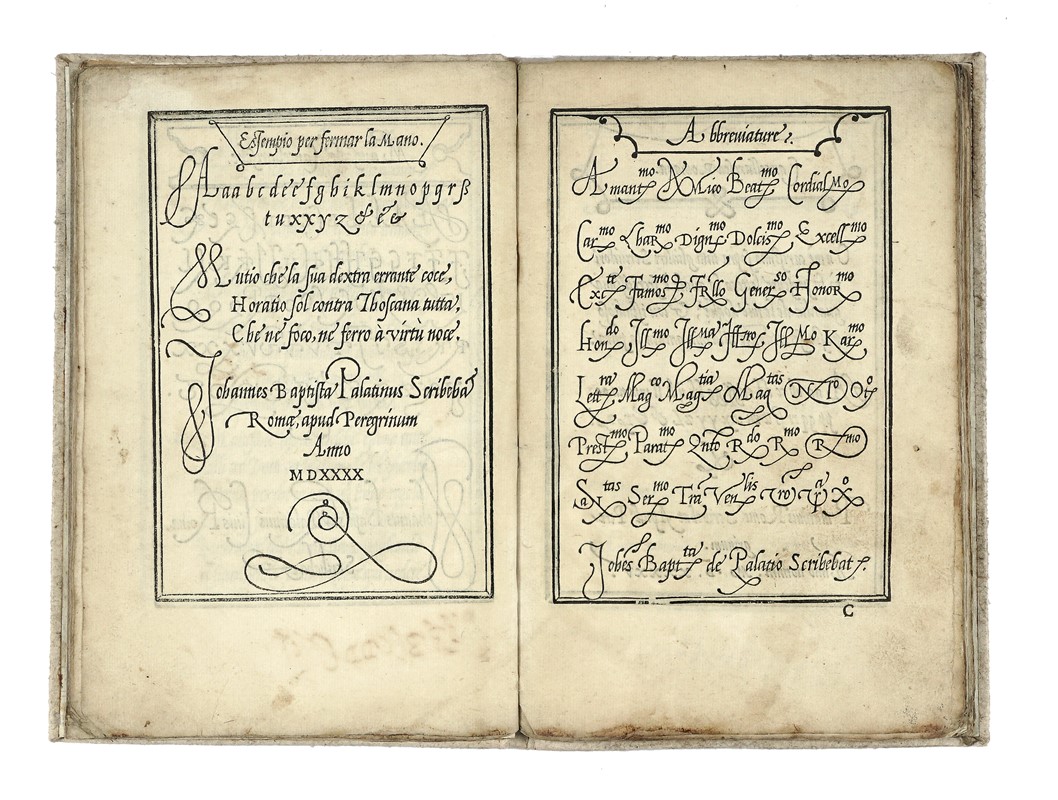 Essempio per fermar la Mano.
A a a b c d e e f g h i k l m n o p q r s ß
t u x x y z & et &
Mutio che la sua dextra errante coce,
Horatio sol contra Thoscana tutta,
Che nè foco, ne ferro à virtu noce.
Johannes Baptista Palatinus Scribebat
Romæ, apud Peregrinum
Anno
MDXXXX
Abbreviature.
Amantmo Amico Beatmo CordialMo
Carmo Charmo Dignmo Dolcismo Excellmo
Excte Famosmo Frllo Generso Honormo
Hondo Jllmo JllMa Jllro JllMo Karmo
Lettra Magco Magtia Magtas N Pio Oto
Prestmo Paratmo Qnto Rdo Rmo Rmo
Satas Sermo Tra Venlis
Johes Baptta de Palatio Scribebat.
C